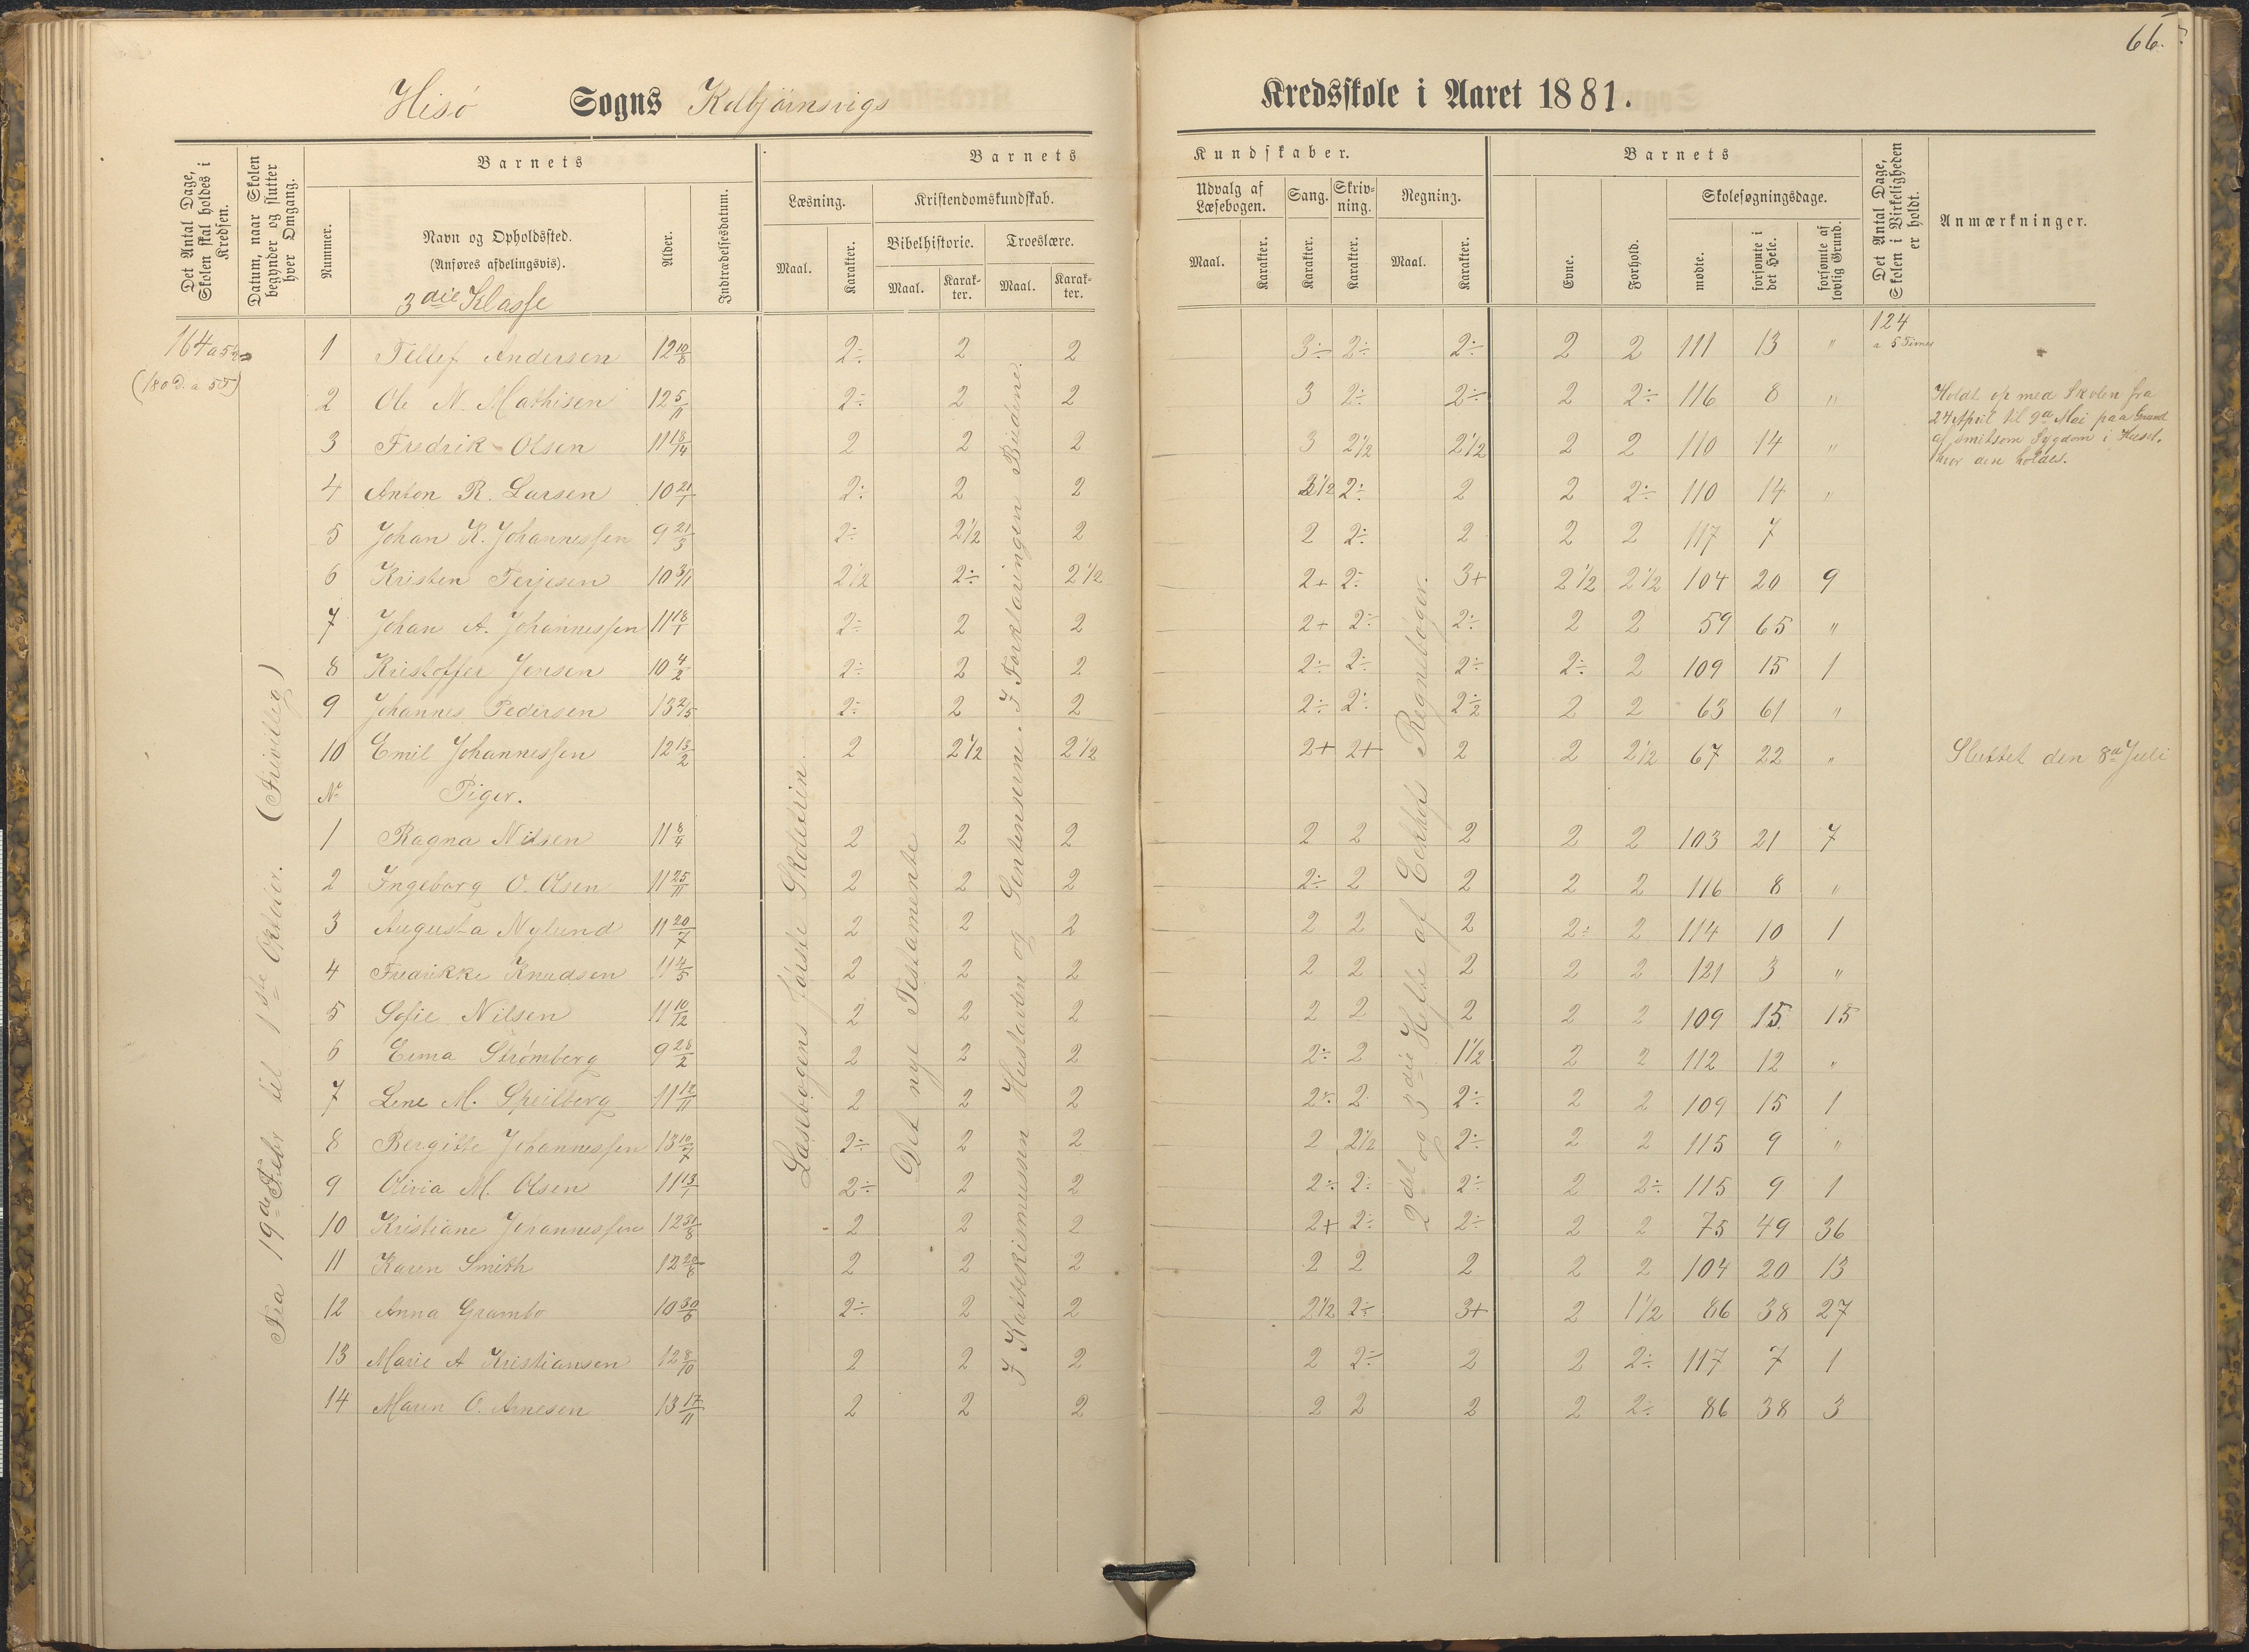 66.
Hisö Sogns Kolbjörnsvigs Kredsskole i Aaret 1881.
Det Antal Dage, Skolen skal holdes i Kredsen.
Datum, naar Skolen begynder og slutter hver Omgang.
Barnets
Nummer.
Navn og Opholdssted.
(Anføres afdelingsvis).
3die Klasse
Alder.
Indtrædelsesdatum.
Barnets Kundskaber.
Læsning.
Maal.
Karakter.
Kristendomskundskab.
Bibelhistorie.
Maal.
Karakter.
Troeslære.
Maal.
Karakter.
Udvalg af Læsebogen.
Maal.
Karakter.
Sang.
Karakter.
Skrivning.
Karakter.
Regning.
Maal.
Karakter.
Barnets
Evne.
Forhold.
Skolesøgningsdage.
mødte.
forsømte i det Hele.
forsømte af lovlig Grund.
Det Antal Dage, Skolen i Virkeligheden er holdt.
Anmærkninger.
164 a 5½
(180 D. a 5T)
Fra 19de Febr til 1ste Oktober. (Frivillig)
Læsebogens første Skoletrin.
Det nye Testamente
I Katekismussen Hustavlen og Sentenserne. I Forklaringen Budene.
2det og 3die Hefte af Eckhofs Regnebøger.
124
a 5 Timer
1 Tellef Andersen 12 10/8 2÷ 2 2 3÷ 2÷ 2÷ 2 2 111 13 "
2 Ole N. Mathisen 12 5/11 2÷ 2 2 3 2÷ 2÷ 2 2÷ 116 8 "
3 Fredrik Olsen 11 18/14 2 2 2 3 2½ 2½ 2 2 110 14 "
4 Anton R. Larsen 10 21/1 2÷ 2 2 2½ 2÷ 2 2 2÷ 110 14 "
5 Johan K. Johannessen 9 21/3 2÷ 2½ 2 2 2÷ 2 2 2 117 7
6 Kristen Terjesen 10 3/11 2½ 2÷ 2½ 2+ 2÷ 3+ 2½ 2½ 104 20 9
7 Johan A. Johannessen 11 18/1 2÷ 2 2 2+ 2÷ 2÷ 2 2 59 65 "
8 Kristoffer Jensen 10 4/2 2÷ 2 2 2÷ 2÷ 2÷ 2÷ 2 109 15 1
9 Johannes Pedersen 13 2/5 2÷ 2 2 2÷ 2÷ 2½ 2 2 63 61 "
10 Emil Johannessen 12 13/2 2 2½ 2½ 2+ 2+ 2 2 2½ 67 22 "
Holdt op med Skolen fra
24 April til 9de Mai paa Grund
af smitsom Sygdom i Huset,
hvor den holdes.
Sluttet den 8de Juli
Nr Piger.
1 Ragna Nilsen 11 8/4 2 2 2 2 2 2 2 2 103 21 7
2 Ingeborg O. Olsen 11 25/11 2 2 2 2÷ 2 2 2 2 116 8 "
3 Augusta Nylund 11 20/7 2 2 2 2 2 2 2÷ 2 114 10 1
4 Fredrikke Knudsen 11 4/5 2 2 2 2 2 2 2 2 121 3 "
5 Sofie Nilsen 11 10/12 2 2 2 2 2 2 2 2 109 15 15
6 Erma Strömberg 9 28/2 2 2 2 2÷ 2 1½ 2 2 112 12 "
7 Lene M. Speilberg 11 12/11 2 2 2 2÷ 2 2÷ 2 2 109 15 1
8 Bergitte Johannessen 13 10/7 2÷ 2 2 2 2½ 2÷ 2 2 115 9 "
9 Olivia M. Olsen 11 13/1 2÷ 2 2 2÷ 2÷ 2÷ 2 2÷ 115 9 1
10 Kristiane Johannessen 12 31/8 2 2 2 2+ 2÷ 2÷ 2 2 75 49 36
11 Karen Smith 12 28/8 2 2 2 2 2 2 2 2 104 20 13
12 Anna Grambo 10 30/8 2÷ 2 2 2½ 2÷ 3+ 2 1½ 86 38 27
13 Marie A Kristiansen 12 8/10 2 2 2 2 2÷ 2 2 2÷ 117 7 1
14 Maren O. Arnesen 13 17/11 2 2 2 2 2 2 2 2÷ 86 38 3